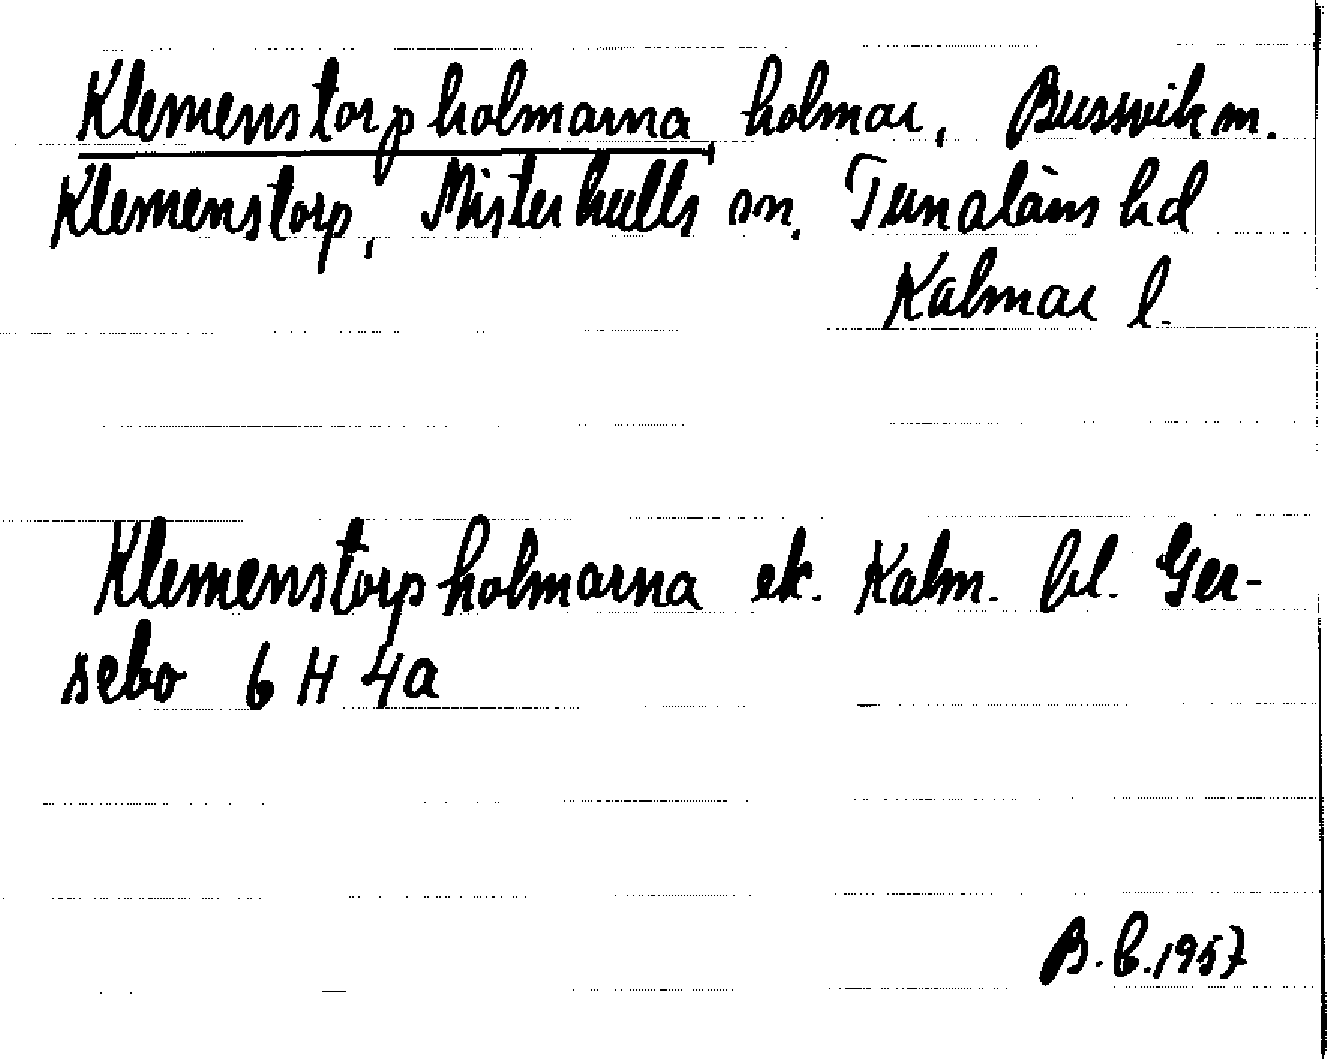 Klemenstorpholmarna holmar, Bussvik m.
Klemenstorp, Misterhults sn. Tunaläns hd
Kalmar l.
Klemenstorpholmarna ek. Kalm. bl. Ger-
sebo 6 H 4a
B.b.1957